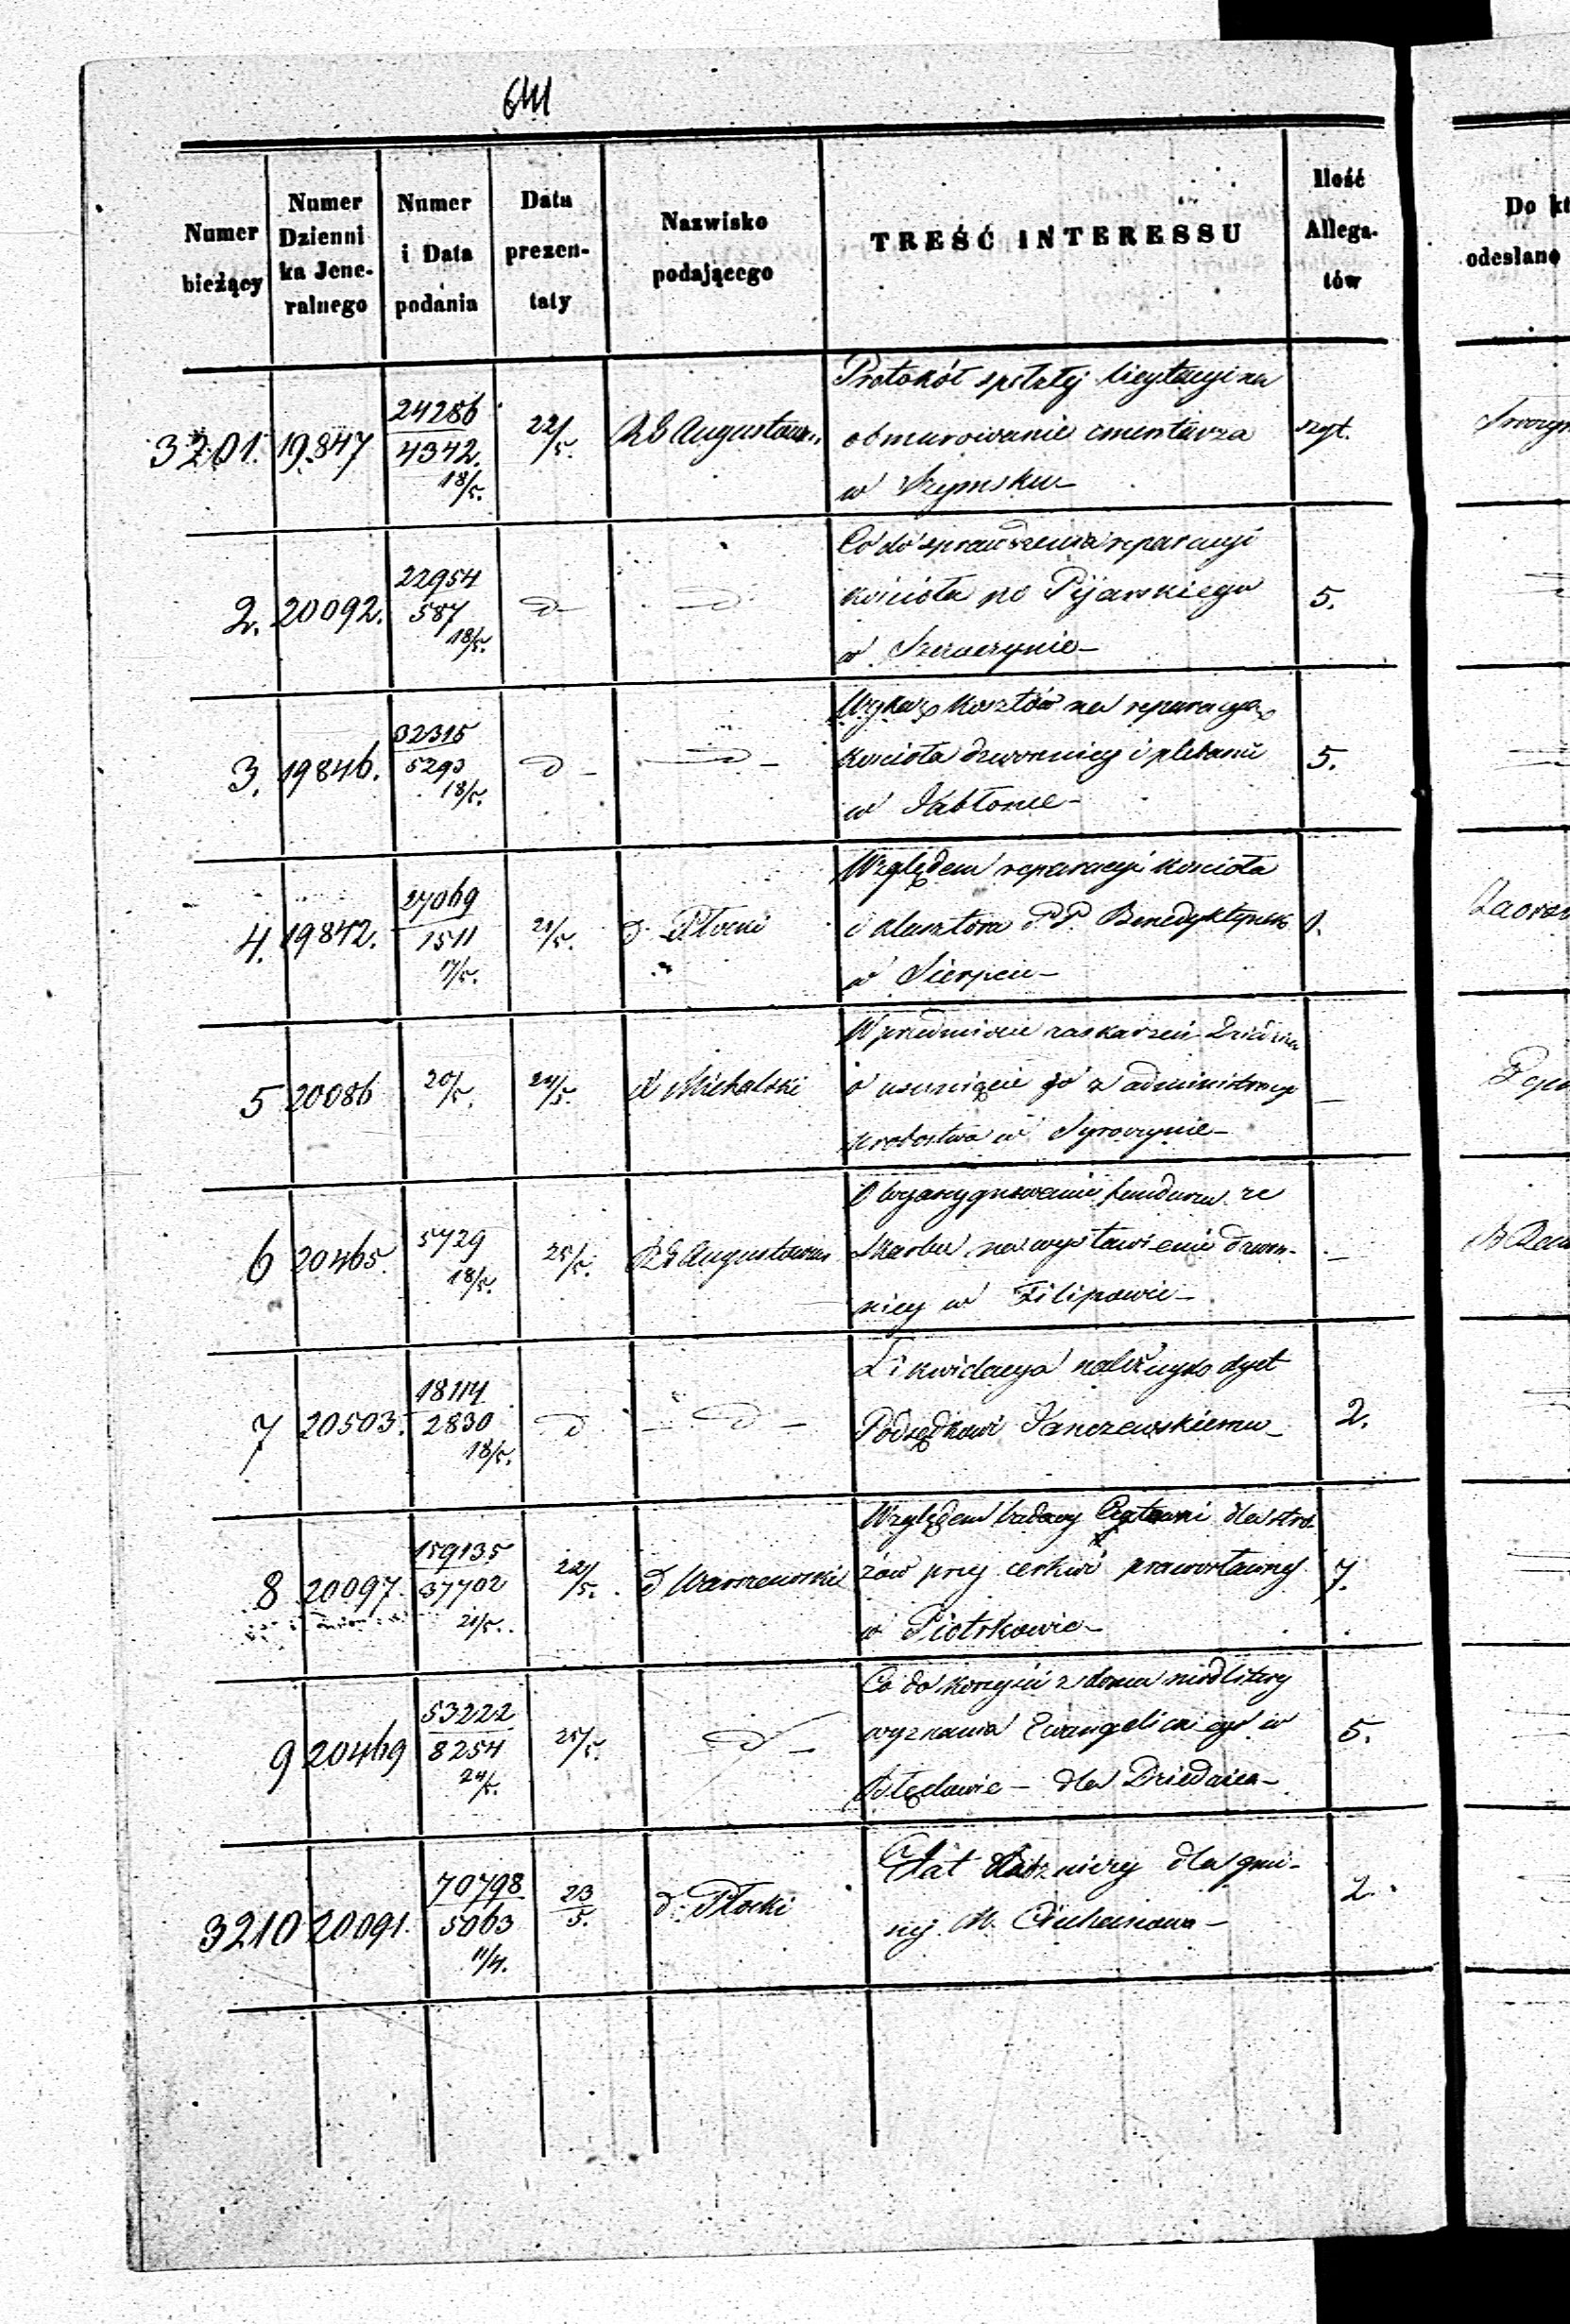 641
Numer bieżący | Numer Dziennika Jeneralnego | Numer i Data podania | Data prezentaty | Nazwisko podającego | TREŚĆ INTERESSU | Ilość Allegatów | Do kt odesłano
3201. | 19847 | 24286 / 4342. 18/5. | 22/5. | R G Augustow. | Protokół spełzłej licytacyi na
obmurowanie cmentarza
w | szyt.
2. | 20092. | 22954 / 587 18/5. | d | d | Co do sprawdzenia reparacyi
kościoła po Pijarskiego
w Szczuczynie | 5.
3. | 19846. | 32315 / 5293 18/5. | d | d | Wykaz kosztów na reparacye
kościoła dzwonnicy i plebanii
w Jabłonie | 5.
4. | 19842. | 27069 / 1511 17/5. | 21/5. | d Płocki | Względem reparacyi kościoła
i klasztora P.P. Benedyktynek
w Sierpcu | 1.
5 | 20086 | 20/5. | 24/5. | X Michalski | W przedmiocie zaskarzeń Dziedzica
o usunięcie go z administracyi
probostwa w | —
6 | 20465. | 5729 18/5. | 25/5. | R G Augustowski | O wyasygnowanie funduszu ze
Skarbu na wystawienie dzwon-
nicy w Filipowie | —
7 | 20503. | 18114 / 2830 18/5. | d | d | Likwidacya należnych dyet
Podsędkowi Janczewskiemu | 2.
8 | 20097. | 159135 / 37702 21/5. | 22/5. | d Warszawski | Względem budowy dla stró-
żów przy cerkwi prawosławnej
w Piotrkowie | 7.
9 | 20469 | 53222 / 8254 24/5. | 25/5. | d | Co do korzyści z domu modlitwy
wyznania Ewangelickiego w
dla Dziedzica | 5.
3210 | 20091. | 70798 / 5063 11/4. | 23/5. | d. Płocki | Etat dla gmi-
ny M. Ciechanowa | 2.